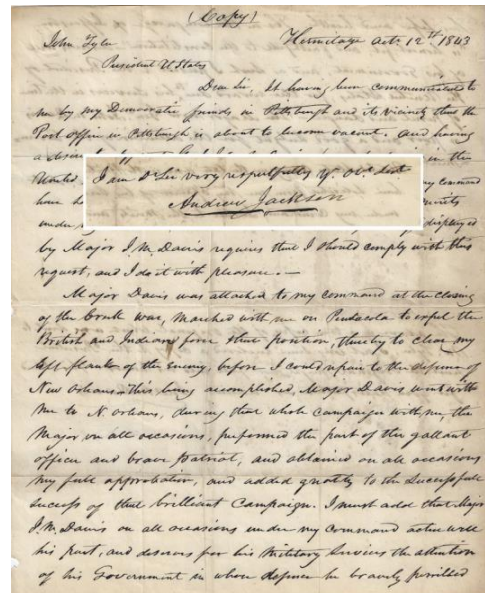 (Copy)
Hermitage Octr. 12th. 1843
John Tyler
President U States
Dear Sir, It having been communicated to
me by my Democratic friends in Pittsburgh and its vicinity that the
Post Office in Pittsburgh is about to become vacant. and having
a in the
United my command
have
under displayed
I am Dr Sir very respectfully yr. obt. Svt
Andrew Jackson
by Major I. M. Davis requires that I should comply with this
request, and I do it with pleasure. —
Major Davis was attached to my command at the closing
of the Creek war, Marched with me on Pensacola to expel the
British and Indians from that position, thereby to clear my
left flank of the enemy, before I could repair to the defence of
New Orleans — this being accomplished, Major Davis went with
me to N. Orleans, during that whole Campaign with me, the
Major on all occasions, preformed the part of the gallant
officer and brave patriot, and obtained on all occasions
my full approbation, and added greatly to the Successfull
success of that brilliant Campaign. I must add that Major
I. M. Davis on all occasions under my command acted well
his part, and deserves for his Military Services the attention
of his Government in whose defence he bravely perilled